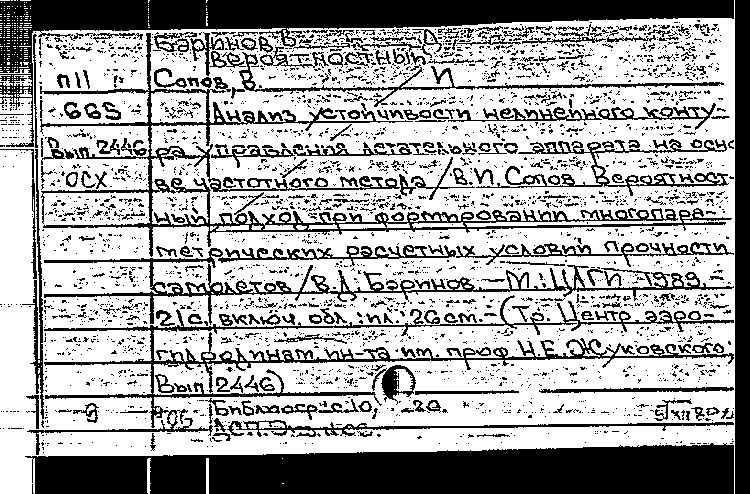 Баринов, В. Д.
Вероятностный
П11 Сопов, В. И
Анализ устойчивости нелинейного конту-
Вып. 2446 ра управления летательного аппарата на осно
осх ве частотного метода / В.И. Сопов. Вероятност-
ный подход при формировании многопара-
метрических расчетных условий прочности
самолетов / В.Д. Баринов. — М.: ЦАГИ, 1989. -
21с., включ. обл. : ил.; 26 см. - (Тр. Центр. аэро-
гидродинам. ин-та им. проф. Н.Е. Жуковского;
Вып. 2446)
Библиогр.: с. 10, 20.
ДСП.